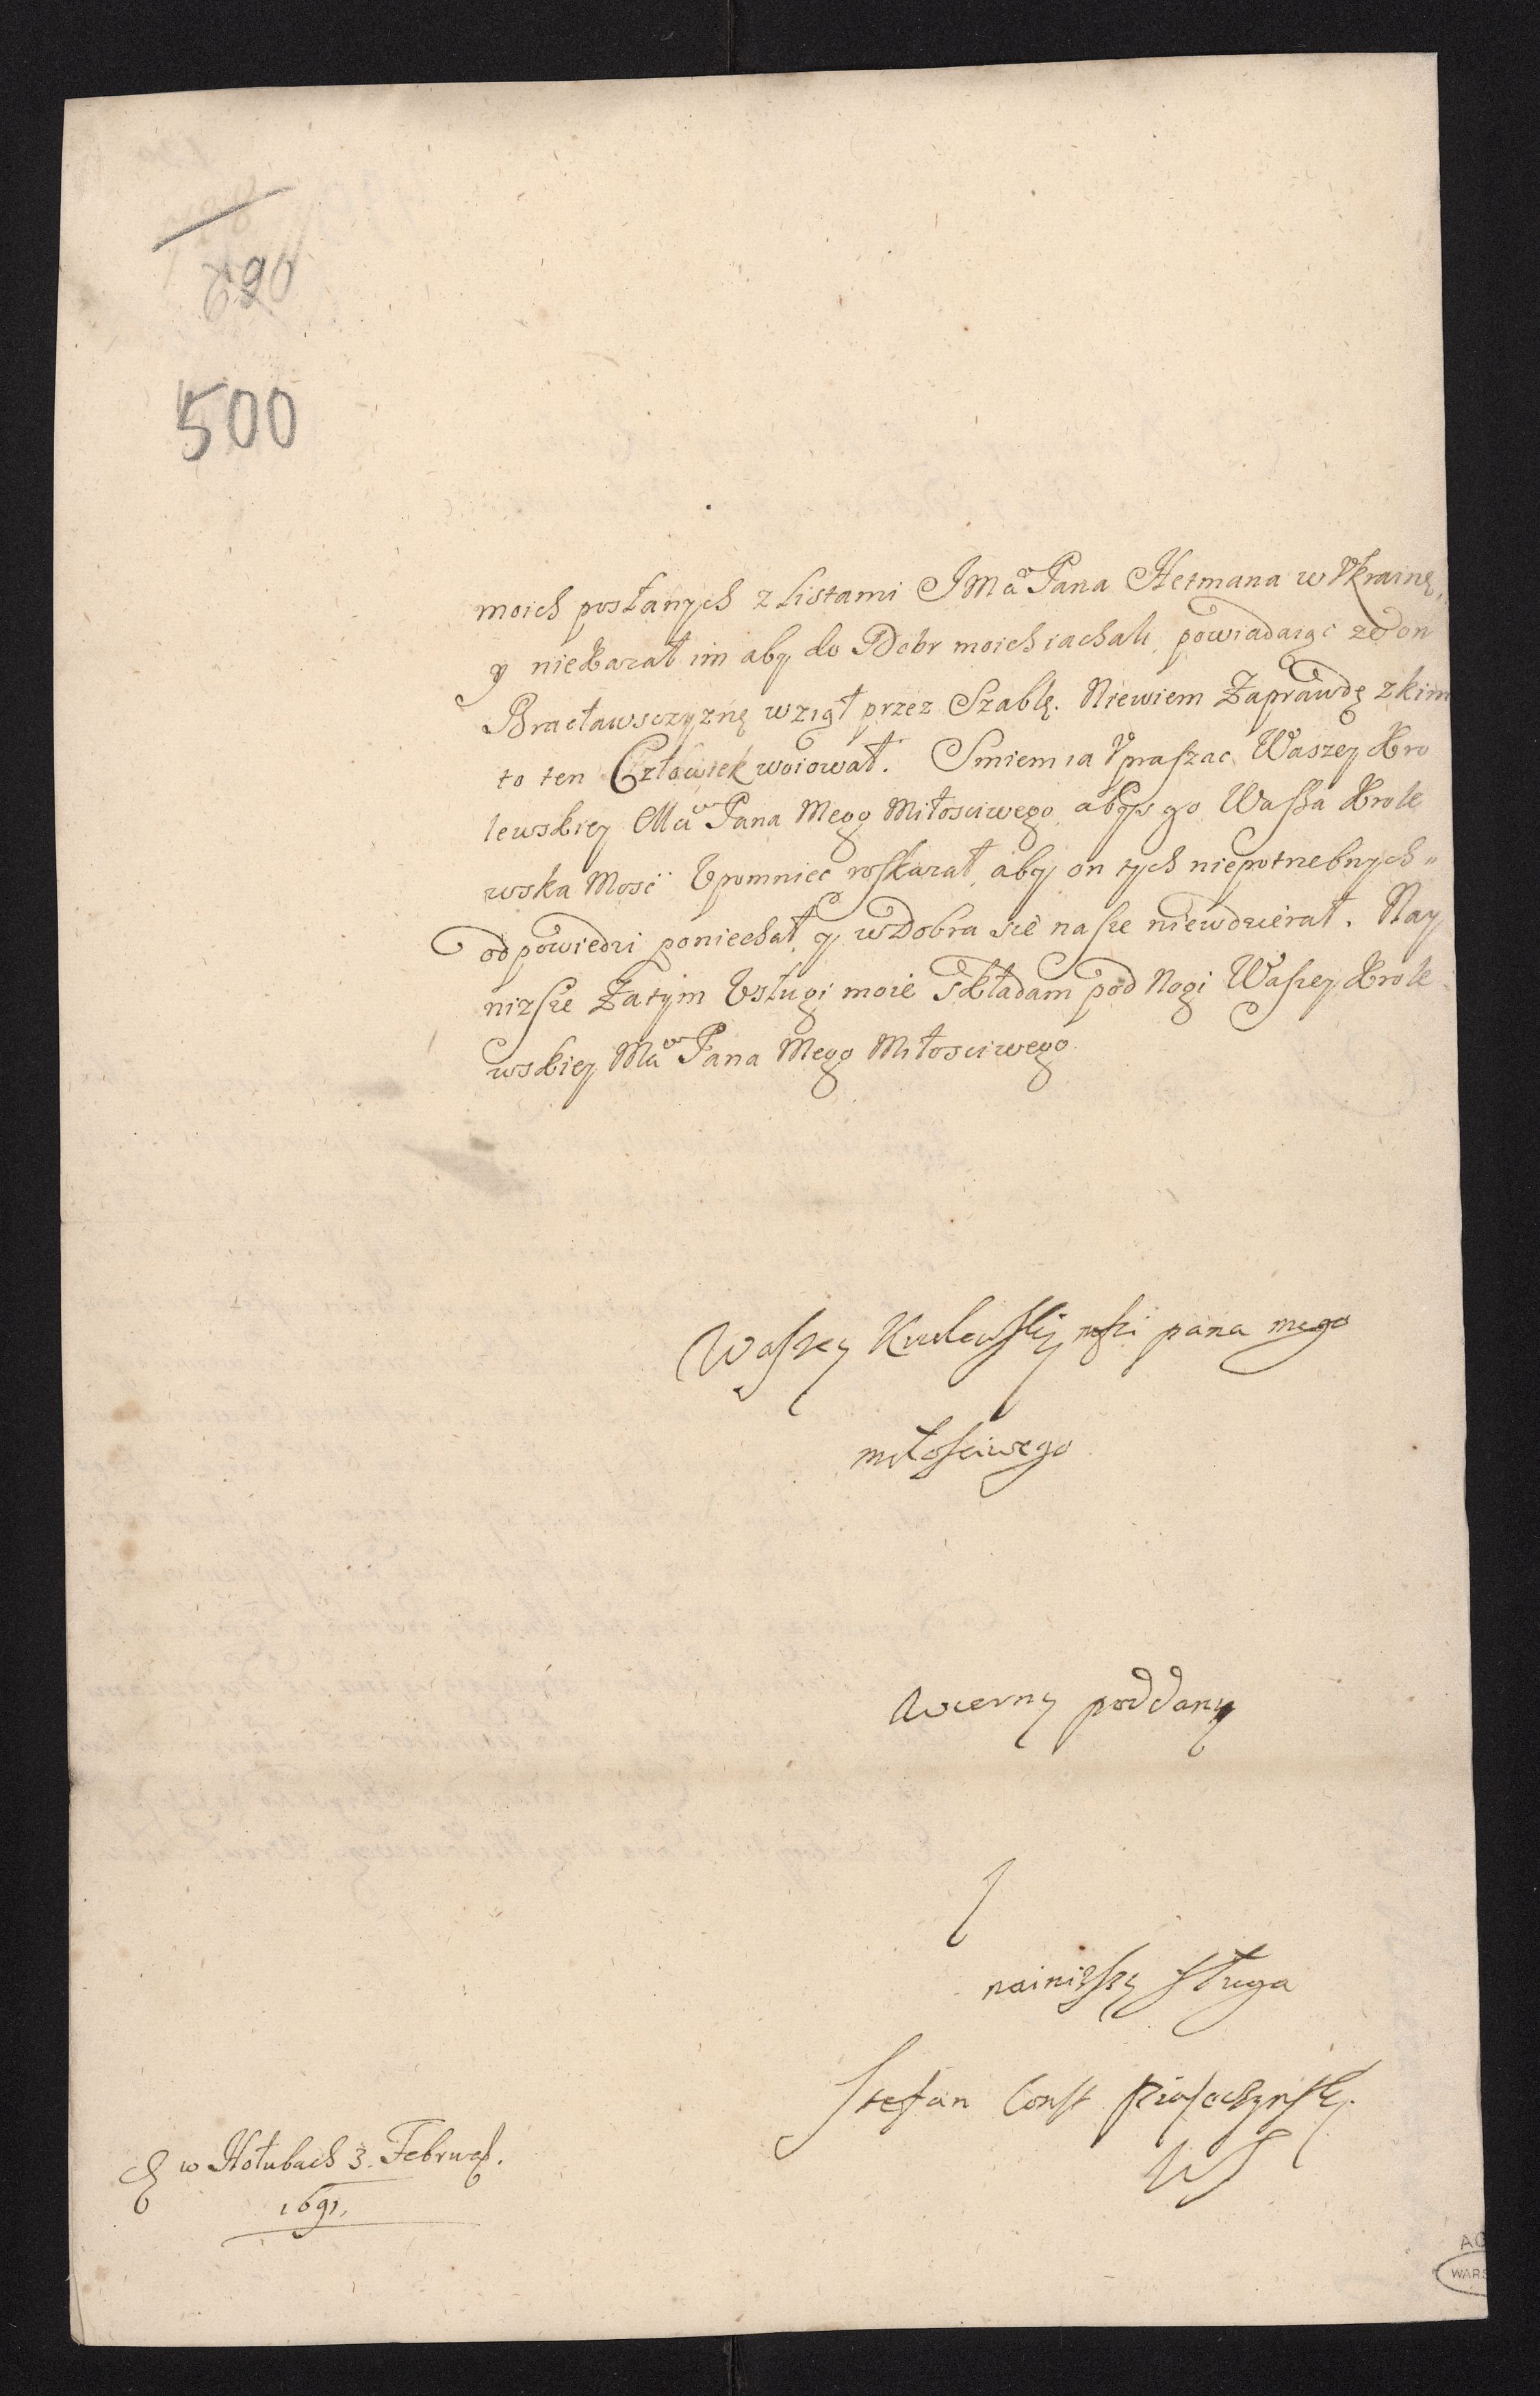 690
500
moich posłanych z listami JMci Pana Hetmana w Vkrainę,
y niekazał im aby do Dobr moich iachali, powiadaiąc ze on
Bracławsczyznę wziął przez Szablę. Niewiem Zaprawdę z kim
to ten Człowiek woiował. Smiem ia Vpraszac Waszey Kro
lewskiey Mci Pana Mego Miłosciwego, abys go Wasza Krole
wska Mosć Vpomniec roskazał, aby on tych niepotrzebnych
odpowiedzi poniechał, y w Dobra się nasze niewdzierał. Nay
nizsze Zatym Vsługi moie składam pod Nogi Waszey Krole
wskiey Mci Pana Mego Miłosciwego.
Waszey Krolewskiy msci pana mego
miłosciwego
wierny poddany
J
nainiszy sługa
Stefan Const Piaseczynsky
w Hołubach 3. Februar.
1691.
WARS